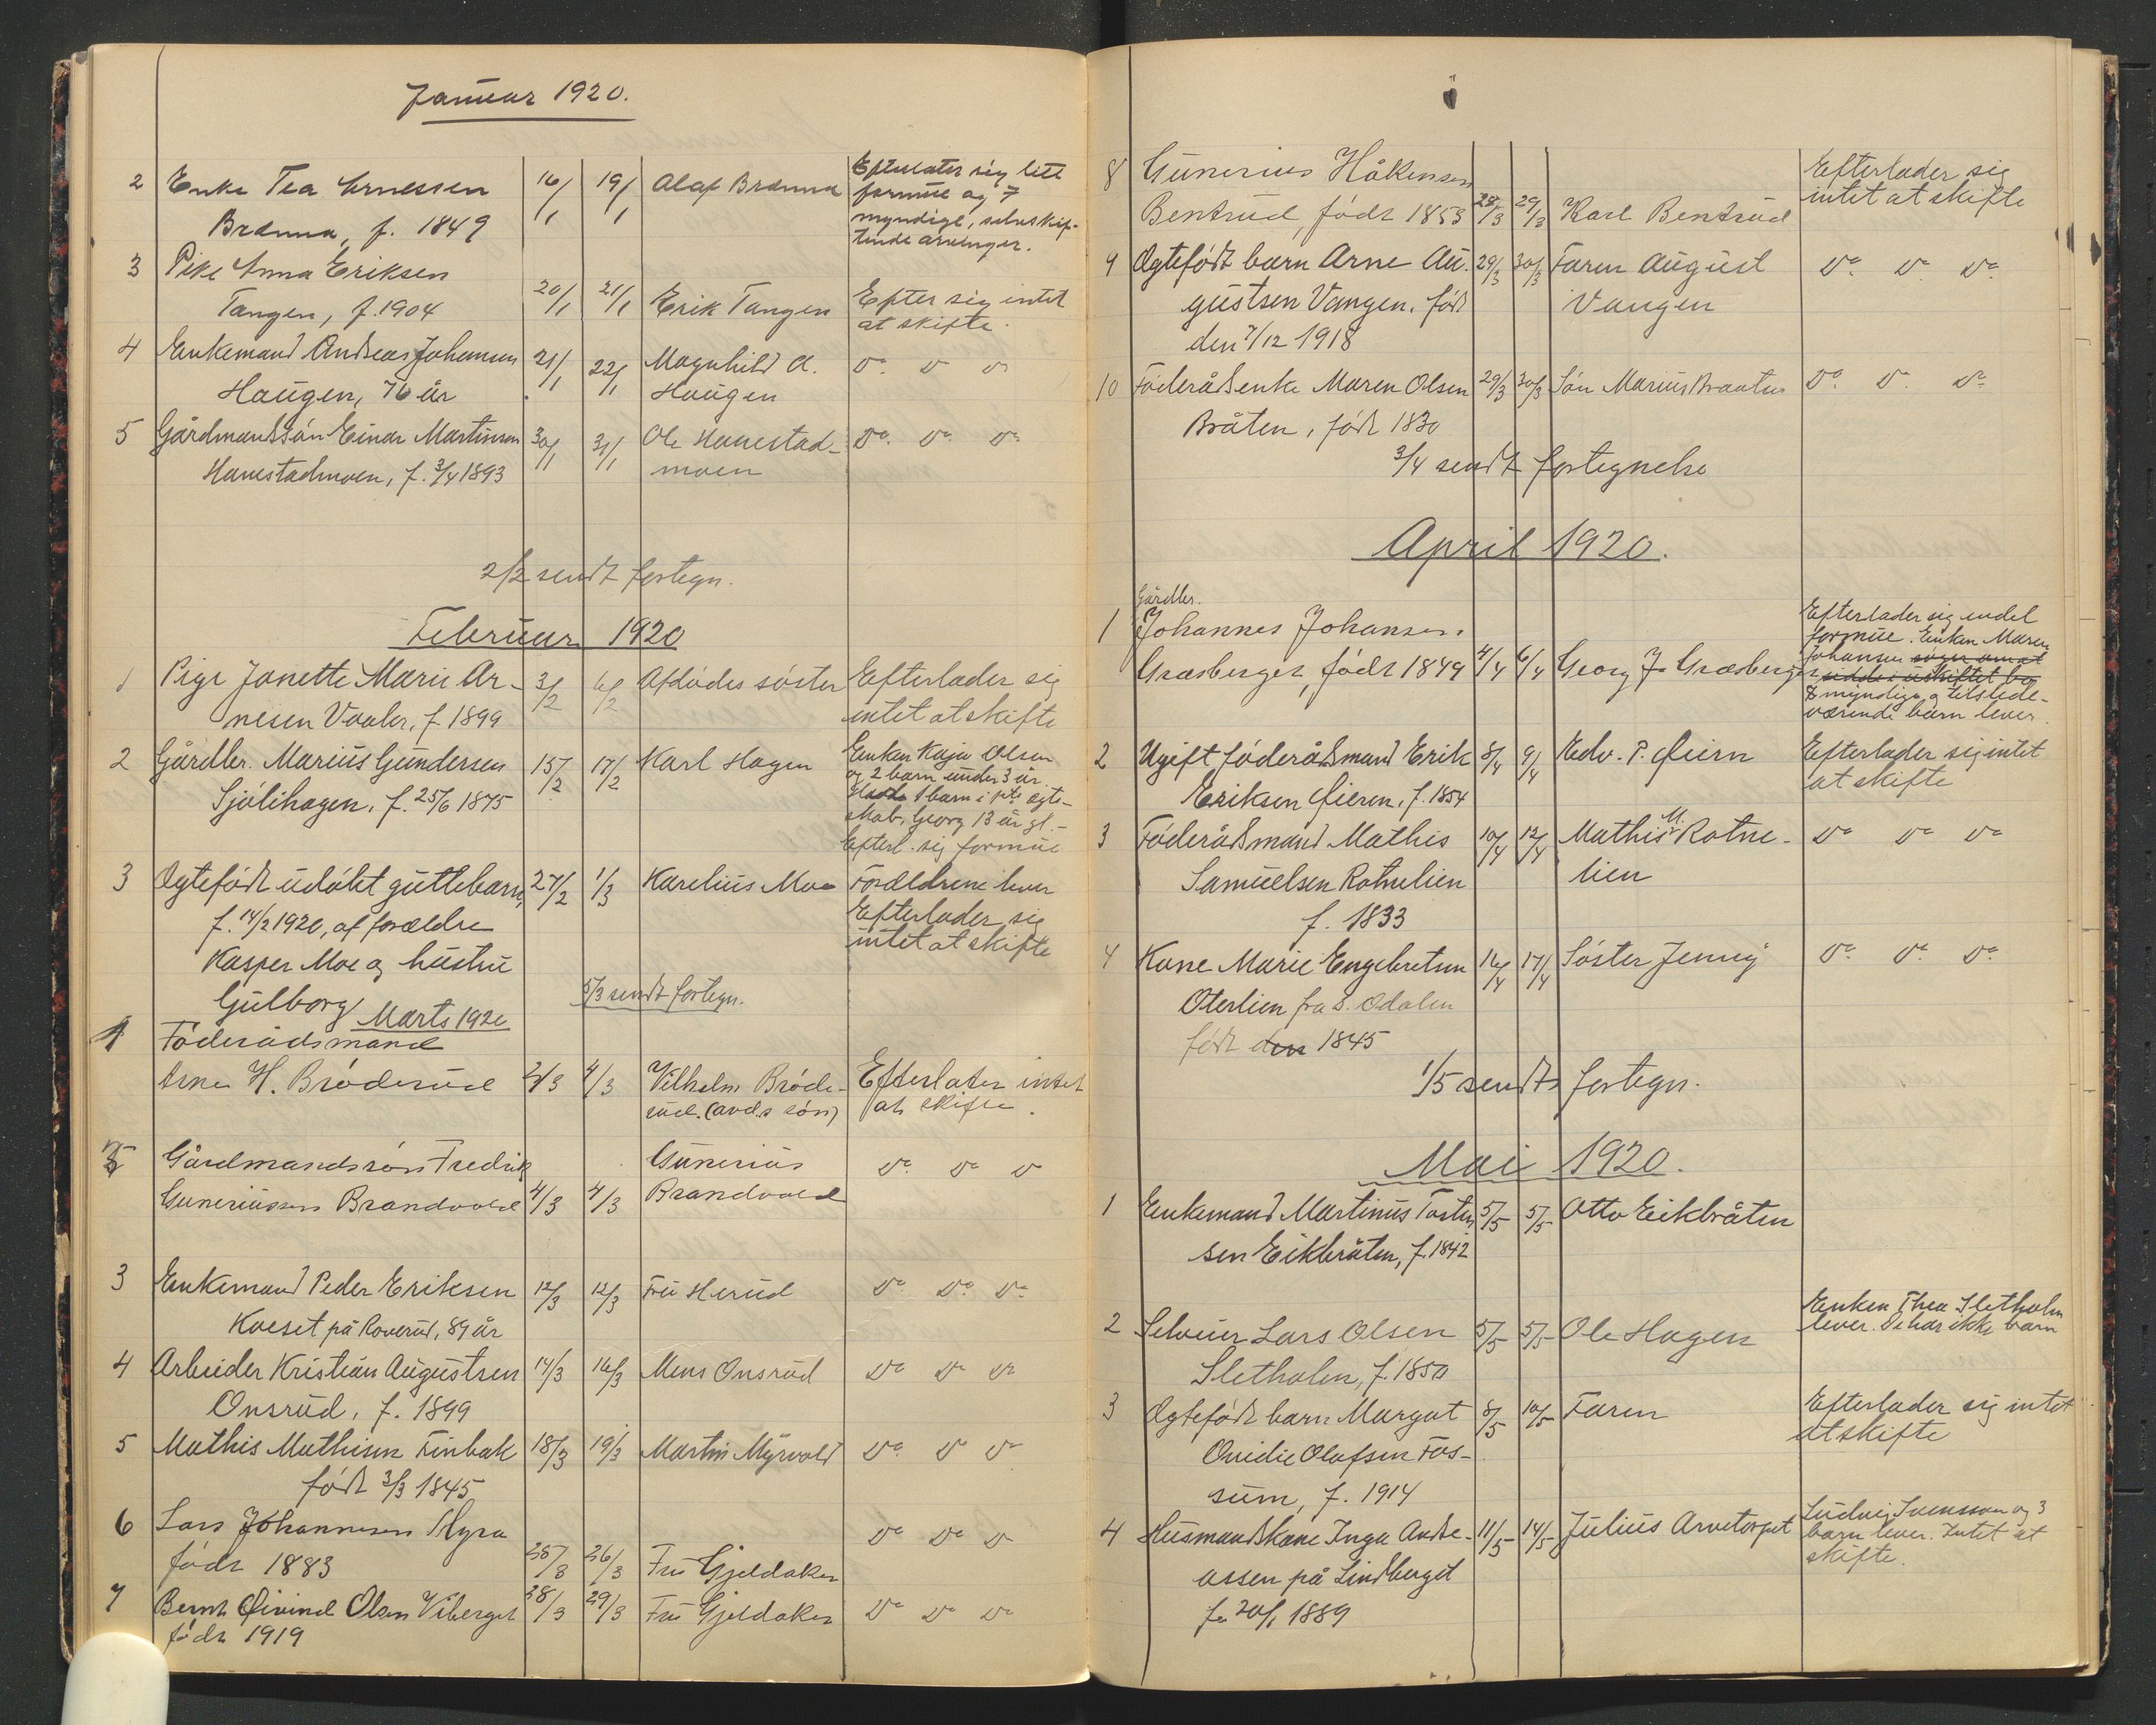 Januar 1920.
2 Enke Tea Arnessen 16/1 19/1 Olaf Brænna Efterlater sig litt
Brænna, f. 1849 formue og 7
myndige, selvskif-
tende arvinger.
3 Pike Anna Eriksen
Tangen, f. 1904 20/1 21/1 Erik Tangen Efter sig intet
at skifte.
4 Enkemand Andreas Johansen 21/1 22/1 Magnhild A. Do. Do Do
Haugen, 76 år Haugen
5 Gårdmandssøn Einar Martinsen 30/1 31/1 Ole Hanestad- Do. Do. Do
Hanestadmoen, f. 3/4 1893 moen
2/2 sendt fortegn.
Februar 1920
1 Pige Janette Marie Ar- 3/2 6/2 Afdødes søster Efterlader sig
nesen Vaaler, f. 1899 intet at skifte
2 Gårdbr. Marius Gundersen 15/2 17/2 Karl Hagen Enken Kaja Olsen
Sjølihagen, f. 25/6 1875 og 2 barn under 3 år
1 barn i 1ste egte-
skab, Georg 13 år gl. -
Efterl. sig formue
3 Ægtefødt udøbt guttebarn, 27/2 1/3 Karelius Moe Forældrene lever
f. 14/2 1920, af forældre Efterlader sig
Kasper Moe og hustru intet at skifte
Gulborg 5/3 sendt fortegn.
Marts 1920
1 Føderådsmand
Arne H. Bröderud 2/3 4/3 Vilhelm Bröde- Efterlater intet
rud. (avd.s søn) at skifte.
2 Gårdmandssøn Fredrik Gunerius Do. Do Do
Guneriussen Brandvold 4/3 4/3 Brandvold
3 Enkemand Peder Eriksen 12/3 12/3 Fru Herud Do Do. Do.
Kveset på Roverud, 89 år
4 Arbeider Kristian Augustsen 14/3 16/3 Mens Onsrud Do Do Do
Onsrud, f. 1899
5 Mathis Mathisen Finbak 18/3 19/3 Martin Myrvold Do. Do Do
født 3/3 1845
6 Lars Johannesen Myra Do Do Do
født 1883 25/3 26/3 Fru Gjeldaker
7 Bernt Øivind Olsen Viberget 28/3 29/3 Fru Gjeldaker Do Do Do
født 1919
8 Gunerius Håkensen Efterlader sig
Bentrud, født 1853 28/3 29/3 Karl Bentrud intet at skifte
9 Ægtefødt barn Arne Au- 29/3 30/3 Faren August Do. Do. Do.
gustsen Vangen, født Vangen
den 7/12 1918
10 Føderådsenke Maren Olsen 29/3 30/3 Søn Marius Braaten Do. Do. Do.
Bråten, født 1830
3/4 sendt fortegnelse
April 1920.
Gårdbr.
1 Johannes Johansen Efterlader sig endel
formue. Enken Maren
Græsberget, født 1849 4/4 6/4 Georg J. Græsberget Johansen søger om at
sidde i uskiftet bo
8 myndige og tilstede-
værende barn lever.
2 Ugift føderådsmand Erik 8/4 9/4 Edv. P. Øiern Efterlader sig intet
Eriksen Øieren, f. 1854 at skifte
3 Føderådsmand Mathis 10/4 12/4 Mathis M. Rotne- Do Do Do
Samuelsen Rotnelien lien
f. 1833
4 Kone Marie Engebretsen 16/4 17/4 Søster Jenny Do. Do. Do.
Oterlien fra S. Odalen
født den 1845
1/5 sendt fortegn.
Mai 1920.
1 Enkemand Martinus Tosten 5/5 5/5 Otto Eikbråten
sen Eikbråten, f. 1842
2 Selveier Lars Olsen 5/5 5/5 Ole Hagen Enken Thea Sletholen
Sletholen, f. 1850 lever. De har ikke barn
3 Ægtefødt barn Margot 8/5 10/5 Faren Efterlader sig intet
Ovidie Olafsen Fos- at skifte
sum, f. 1914
4 Husmandskone Inga Andre- 11/5 14/5 Julius Arvetorpet Ludvig Svensson og 3
assen på Lindberget barn lever. Intet at
f. 20/1 1889 skifte.